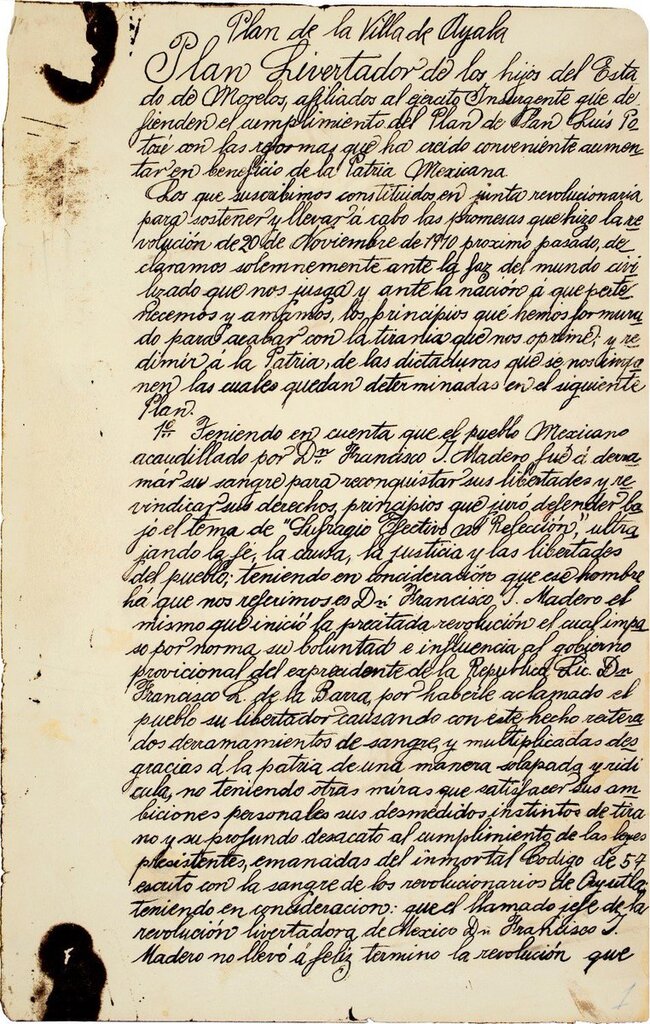 Plan de la Villa de Ayala
Plan Livertador de los hijos del Esta
do de Morelos, afiliados al ejército Insurgente que de
fienden el cumplimiento del Plan de San Luis Po
tosí con las reformas que ha creido conveniente aumen
tar en beneficio de la Patria Mexicana.
Los que suscribimos constituidos en junta revolucionaria
para sostener y llevar á cabo las promesas que hizo la re
volución de 20 de Noviembre de 1910 proximo pasado, de
claramos solemnemente ante la faz del mundo civi
lizado que nos jusga y ante la nación á que perte
necemos y amamos, los principios que hemos formula
do para acabar con la tirania que nos oprime; y re
dimir á la Patria, de las dictaduras que se nos impo
nen las cuales quedan determinadas en el siguiente
Plan.
1o. Teniendo en cuenta que el pueblo Mexicano
acaudillado por Dn. Francisco I. Madero fué á derra
mar su sangre para reconquistar sus libertades y re
vindicar sus derechos, principios que juró defender ba
jo el tema de "Sufragio Efectivo no Relección," ultra
jando la fe, la causa, la justicia y las libertades
del pueblo; teniendo en concideración que ese hombre
há que nos referimos es Dn. Francisco, I. Madero el
mismo que inició la precitada revolución el cual impu
so por norma su boluntad e influencia al gobierno
provicional del exprecidente de la República, Lic. Dn.
Francisco L. de la Barra, por haberle aclamado el
pueblo su libertador causando con este hecho reitera
dos derramamientos de sangre, y multiplicadas des
gracias á la patria de una manera solapada y ridí
cula, no teniendo otras miras que satisfacer sus am
biciones personales sus desmedidos instintos de tira
no y su profundo desacato al cumplimiento de las leyes
presistentes, emanadas del inmortal Codigo de 57
escrito con la sangre de los revolucionarios de Ayutla,
teniendo en concideracion: que el llamado jefe de la
revolución livertadora de Mexico Dn. Francisco I.
Madero no llevó á feliz termino la revolución que
1